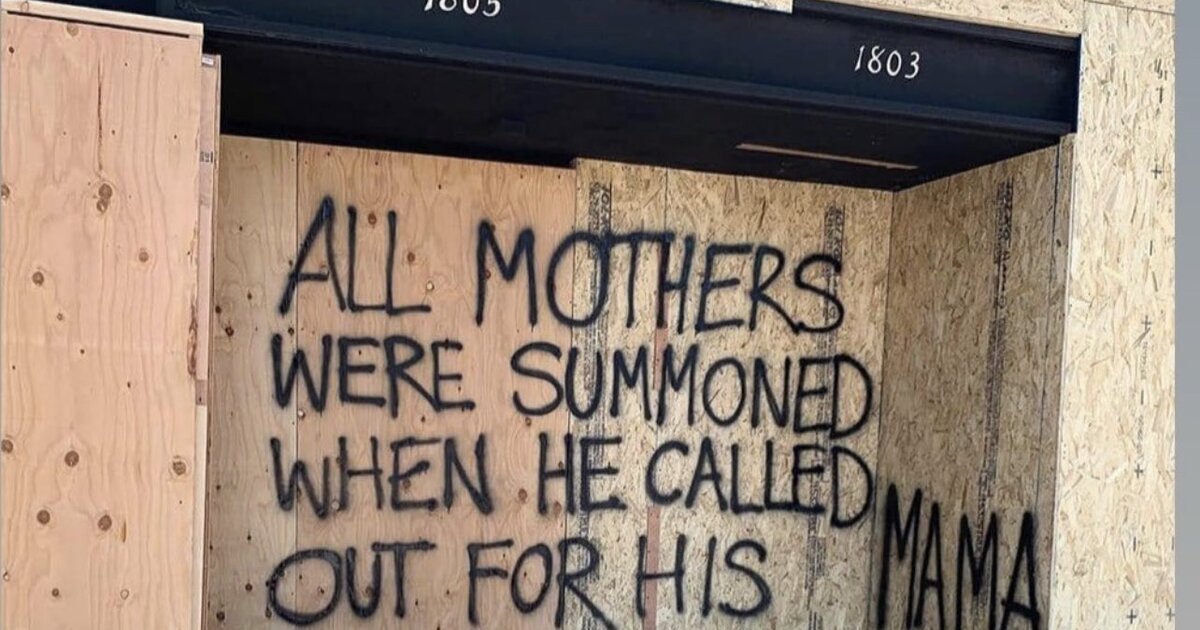 1805
1803
ALL MOTHERS
WERE SUMMONED
WHEN HE CALLED
OUT FOR HIS
MAMA